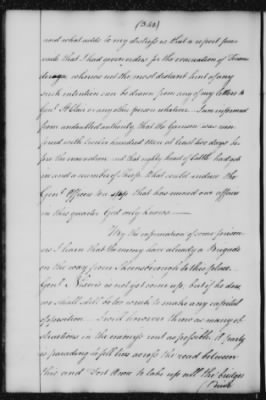 (340)
and what adds to my distress is that a report pre-
vails that I had given orders for the evacuation of Ticonde
deroga, whereas not the most distant hint of any
such intention can be drawn from any of my letters to
Genl. St. Clair or any other person whatever. I am informed
from undoubted authority that the Garrison was rein-
forced with twelve hundred men at least two days be-
fore the evacuation and that eighty head of Cattle had got
in and a number of sheep. What could induce the
Genl. Officers to a step that has ruined our affairs
in this quarter God only knows —
By the information of some prison-
ers I learn that the enemy have already a Brigade
on the way from Skenesborough to this place.
Genl. Nixon is not yet come up, but if he does
we shall still be too weak to make any capital
opposition. I wou'd however throw as many ob-
structions in the enemys rout as possible. A party
is parading to fell trees across the road between
this and Fort Anne to take up all the bridges